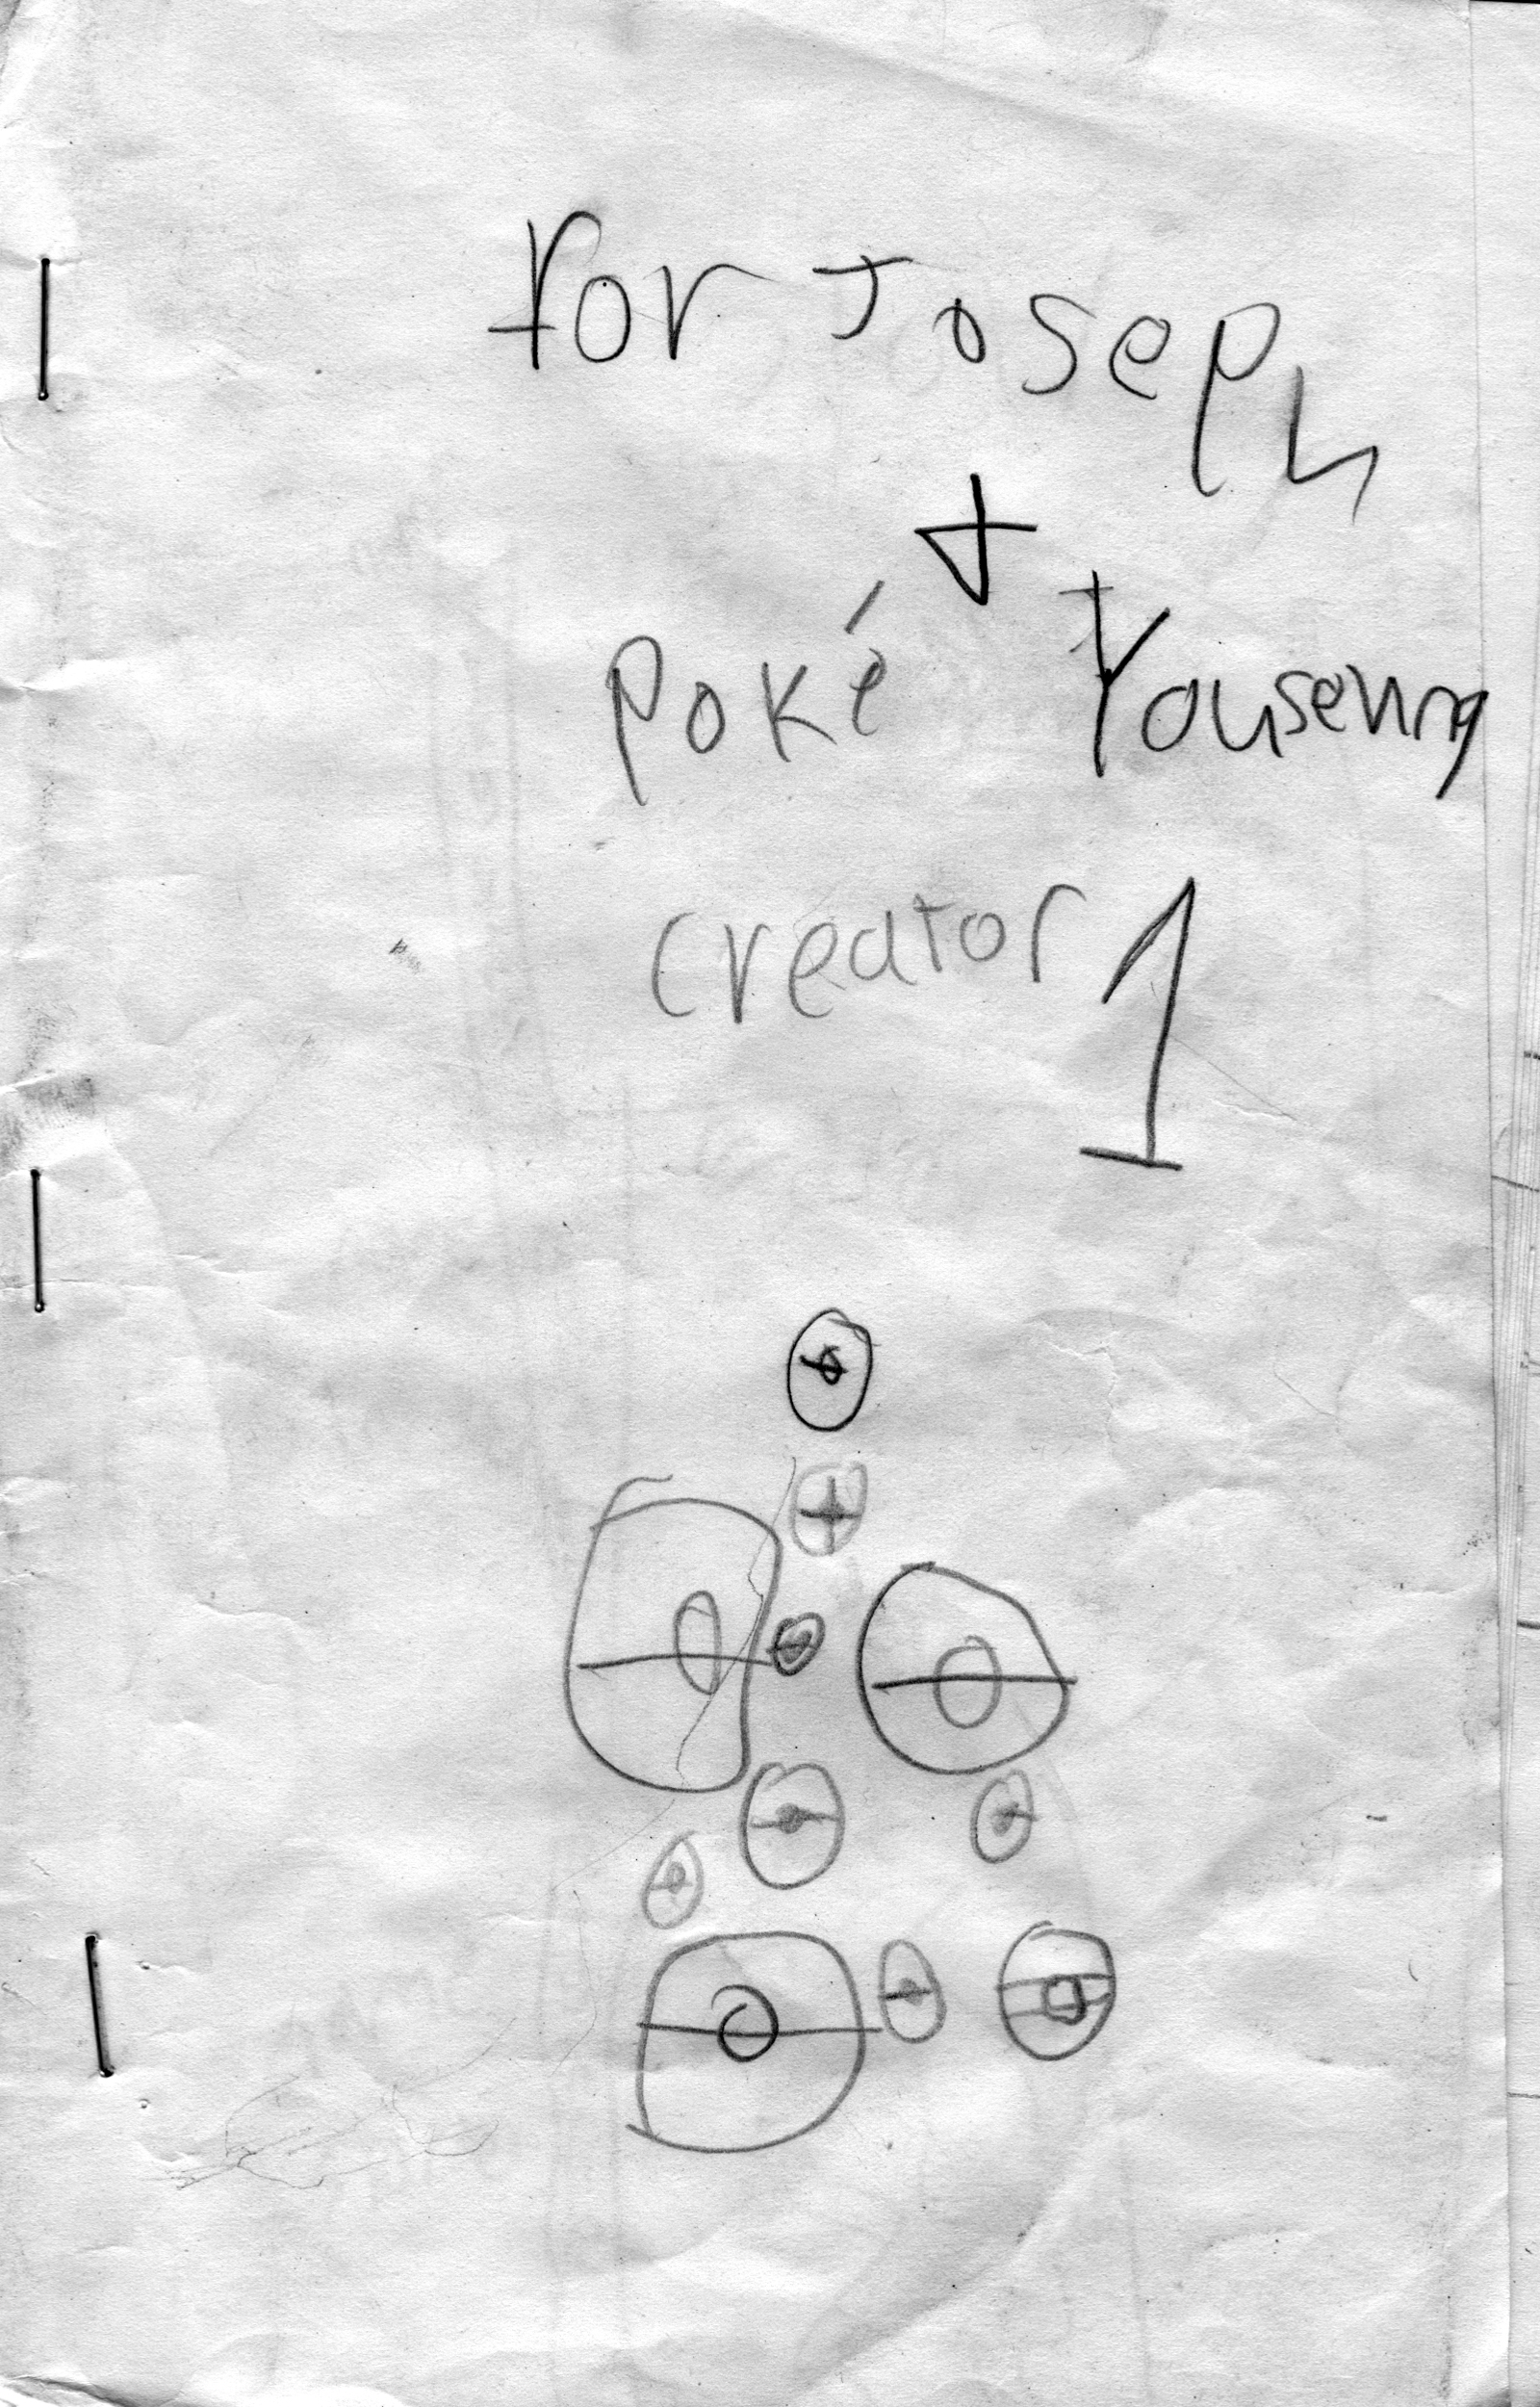 for Joseph
+
Poké Youseung
creator 1